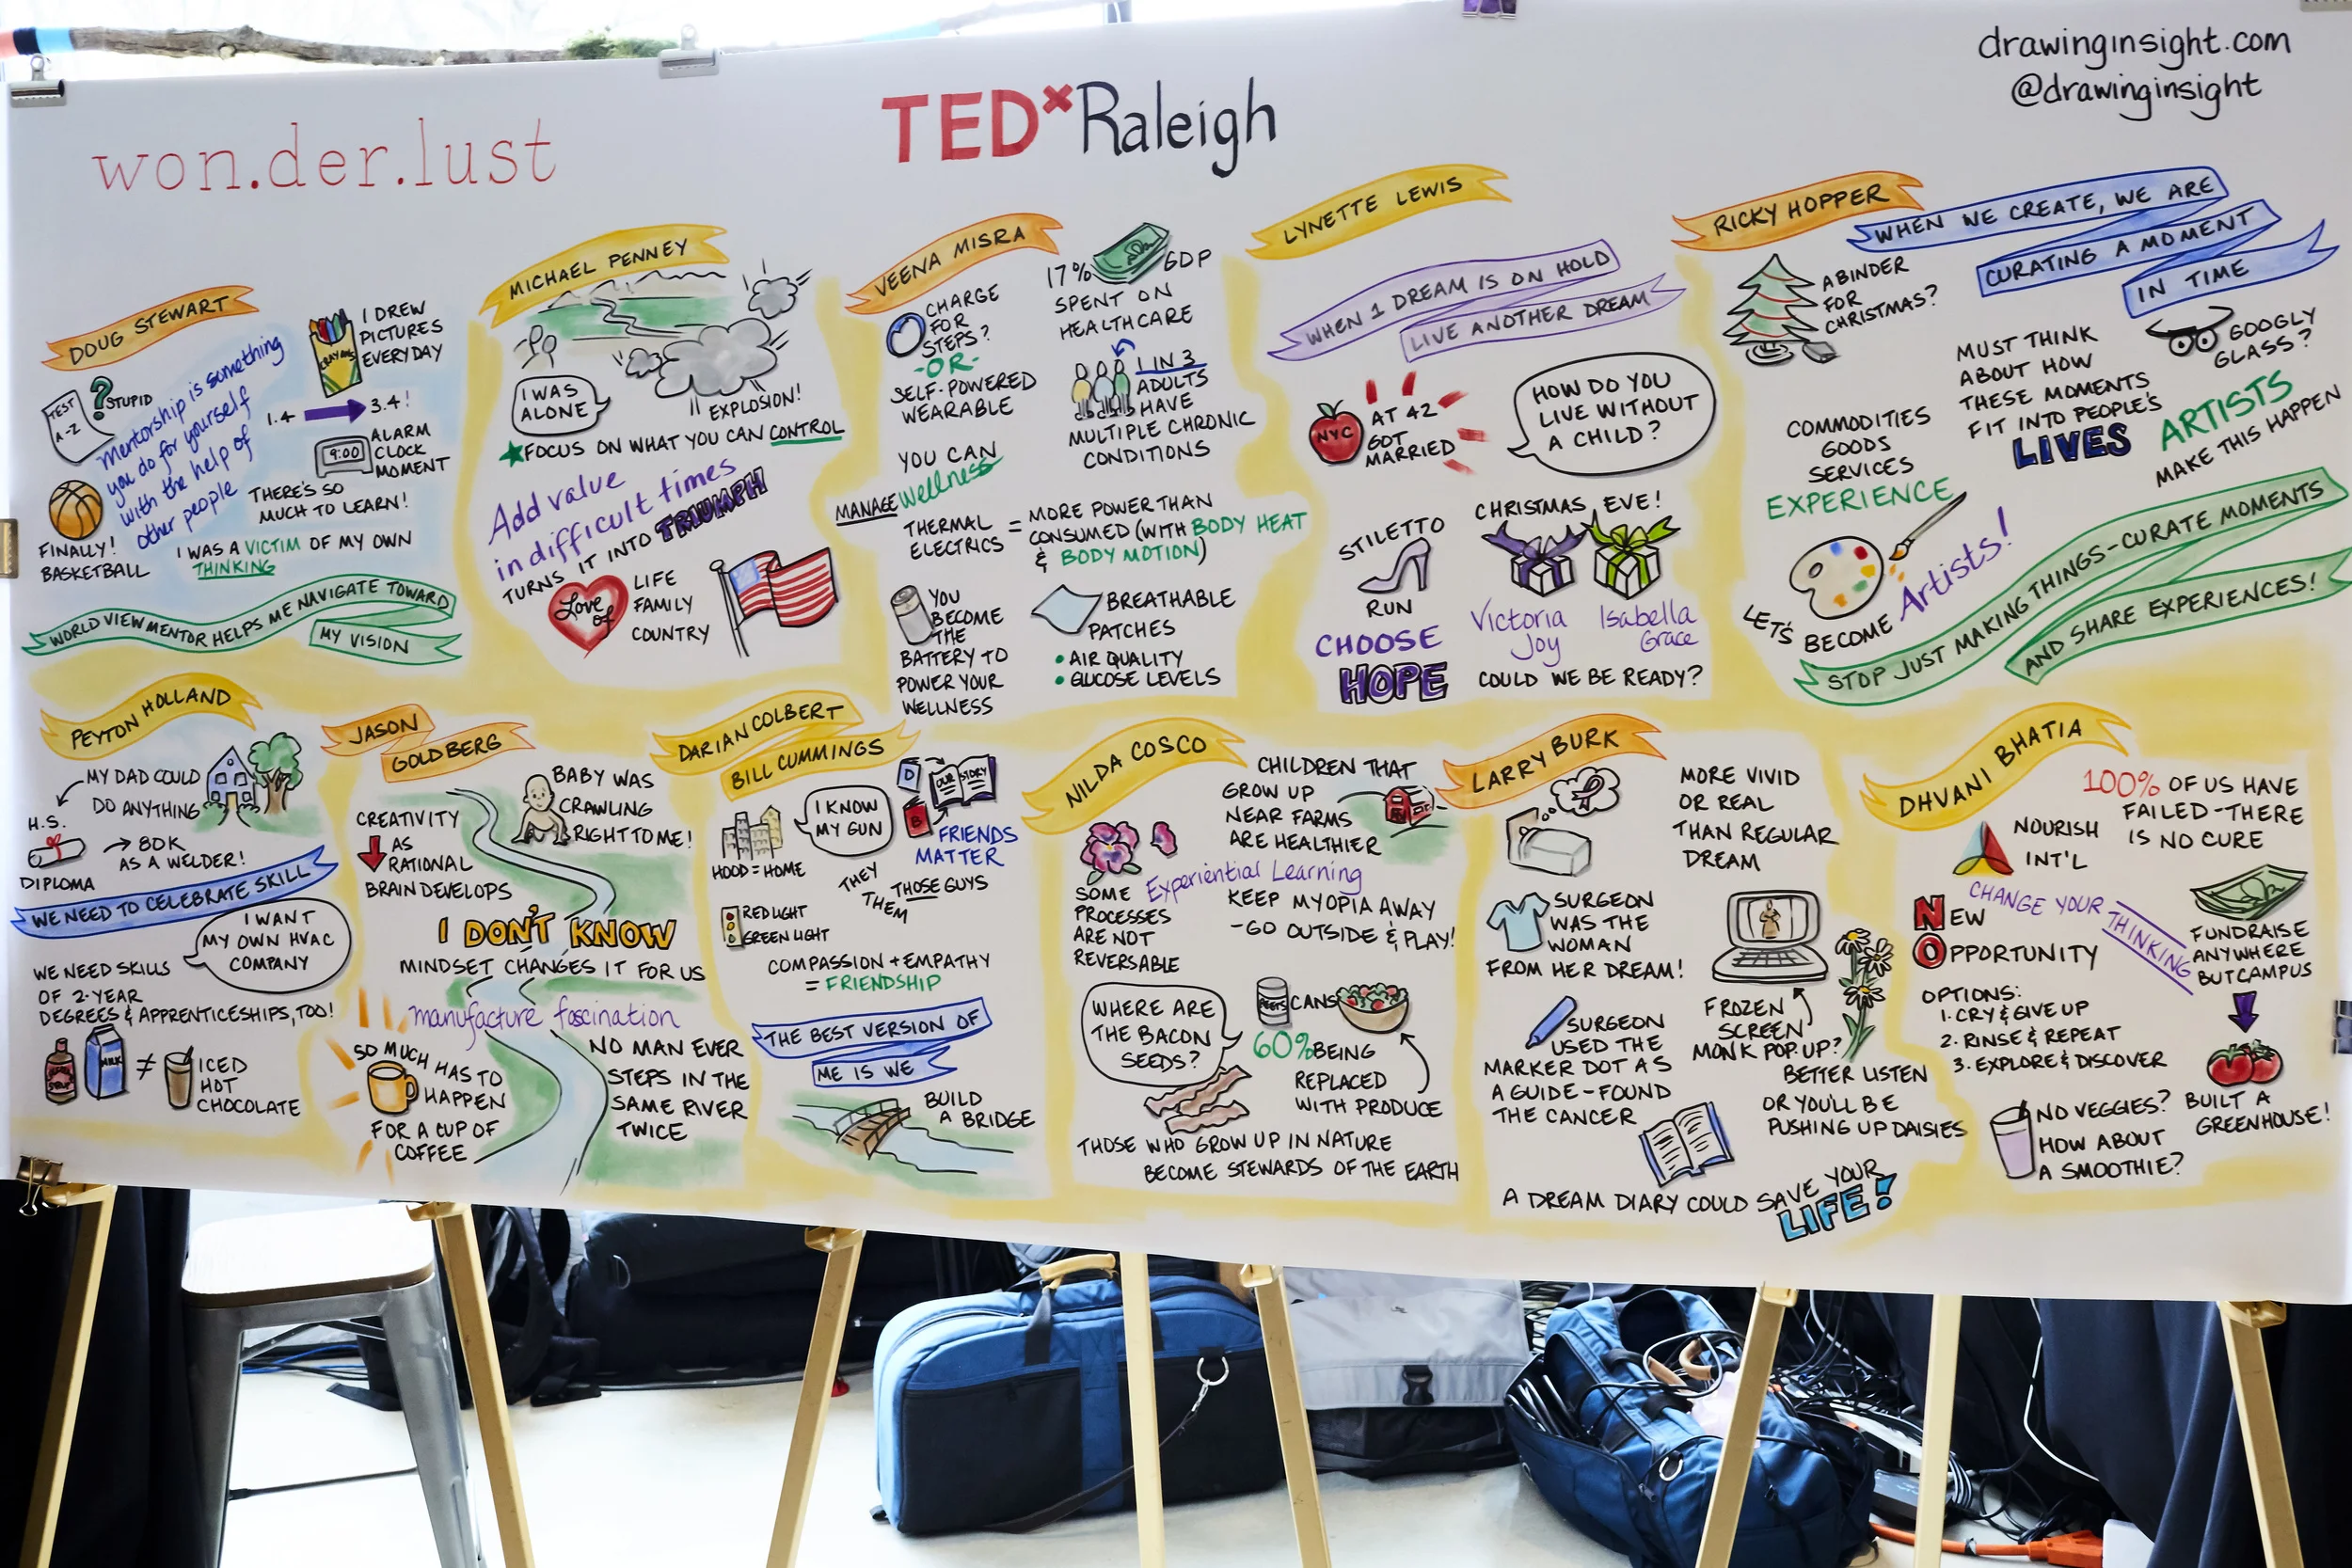 drawinginsight.com
@drawinginsight
won.der.lust
TEDxRaleigh
DOUG STEWART
TEST
A-Z
? STUPID
Mentorship is something
you do for yourself
with the help of
other people
CRAYONS
I DREW
PICTURES
EVERYDAY
1.4
3.4!
9:00
ALARM
CLOCK
MOMENT
THERE'S SO
MUCH TO LEARN!
FINALLY!
BASKETBALL
I WAS A VICTIM OF MY OWN
THINKING
WORLD VIEW MENTOR HELPS ME NAVIGATE TOWARD
MY VISION
MICHAEL PENNEY
I WAS
ALONE
EXPLOSION!
FOCUS ON WHAT YOU CAN CONTROL
Add value
in difficult times
TURNS IT INTO TRIUMPH
Love
of
LIFE
FAMILY
COUNTRY
VEENA MISRA
CHARGE
FOR
STEPS?
-OR-
SELF-POWERED
WEARABLE
17% GDP
SPENT ON
HEALTHCARE
1 IN 3
ADULTS
HAVE
MULTIPLE CHRONIC
CONDITIONS
YOU CAN
MANAGE wellness
THERMAL
ELECTRICS
= MORE POWER THAN
CONSUMED (WITH BODY HEAT
& BODY MOTION)
YOU
BECOME
THE
BATTERY TO
POWER YOUR
WELLNESS
BREATHABLE
PATCHES
• AIR QUALITY
• GLUCOSE LEVELS
LYNETTE LEWIS
WHEN 1 DREAM IS ON HOLD
LIVE ANOTHER DREAM
NYC
AT 42
GOT
MARRIED
HOW DO YOU
LIVE WITHOUT
A CHILD?
STILETTO
RUN
CHOOSE
HOPE
CHRISTMAS EVE!
Victoria
Joy
Isabella
Grace
COULD WE BE READY?
RICKY HOPPER
WHEN WE CREATE, WE ARE
CURATING A MOMENT
IN TIME
A BINDER
FOR
CHRISTMAS?
MUST THINK
ABOUT HOW
THESE MOMENTS
FIT INTO PEOPLE'S
LIVES
GOOGLY
GLASS?
COMMODITIES
GOODS
SERVICES
EXPERIENCE
ARTISTS
MAKE THIS HAPPEN
LET'S BECOME Artists!
STOP JUST MAKING THINGS-CURATE MOMENTS
AND SHARE EXPERIENCES!
PEYTON HOLLAND
MY DAD COULD
DO ANYTHING
H.S.
DIPLOMA
→ 80K
AS A WELDER!
WE NEED TO CELEBRATE SKILL
I WANT
MY OWN HVAC
COMPANY
WE NEED SKILLS
OF 2-YEAR
DEGREES & APPRENTICESHIPS, TOO!
MILK
≠
ICED
HOT
CHOCOLATE
JASON
GOLDBERG
BABY WAS
CRAWLING
RIGHT TO ME!
CREATIVITY
AS
RATIONAL
BRAIN DEVELOPS
I DON'T KNOW
MINDSET CHANGES IT FOR US
manufacture fascination
SO MUCH HAS TO
HAPPEN
FOR A CUP OF
COFFEE
NO MAN EVER
STEPS IN THE
SAME RIVER
TWICE
DARIAN COLBERT
BILL CUMMINGS
HOOD = HOME
I KNOW
MY GUN
D
B
OUR STORY
FRIENDS
MATTER
THEY
THEM
THOSE GUYS
RED LIGHT
GREEN LIGHT
COMPASSION + EMPATHY
= FRIENDSHIP
THE BEST VERSION OF
ME IS WE
BUILD
A BRIDGE
NILDA COSCO
CHILDREN THAT
GROW UP
NEAR FARMS
ARE HEALTHIER
SOME
PROCESSES
ARE NOT
REVERSABLE
Experiential Learning
KEEP MYOPIA AWAY
-GO OUTSIDE & PLAY!
WHERE ARE
THE BACON
SEEDS?
CANS
60% BEING
REPLACED
WITH PRODUCE
THOSE WHO GROW UP IN NATURE
BECOME STEWARDS OF THE EARTH
LARRY BURK
MORE VIVID
OR REAL
THAN REGULAR
DREAM
SURGEON
WAS THE
WOMAN
FROM HER DREAM!
SURGEON
USED THE
MARKER DOT AS
A GUIDE-FOUND
THE CANCER
FROZEN
SCREEN
MONK POP UP?
BETTER LISTEN
OR YOU'LL BE
PUSHING UP DAISIES
A DREAM DIARY COULD SAVE YOUR
LIFE!
DHVANI BHATIA
100% OF US HAVE
FAILED-THERE
IS NO CURE
NOURISH
INT'L
CHANGE YOUR
THINKING
NEW
OPPORTUNITY
OPTIONS:
1. CRY & GIVE UP
2. RINSE & REPEAT
3. EXPLORE & DISCOVER
FUNDRAISE
ANYWHERE
BUT CAMPUS
NO VEGGIES?
HOW ABOUT
A SMOOTHIE?
BUILT A
GREENHOUSE!